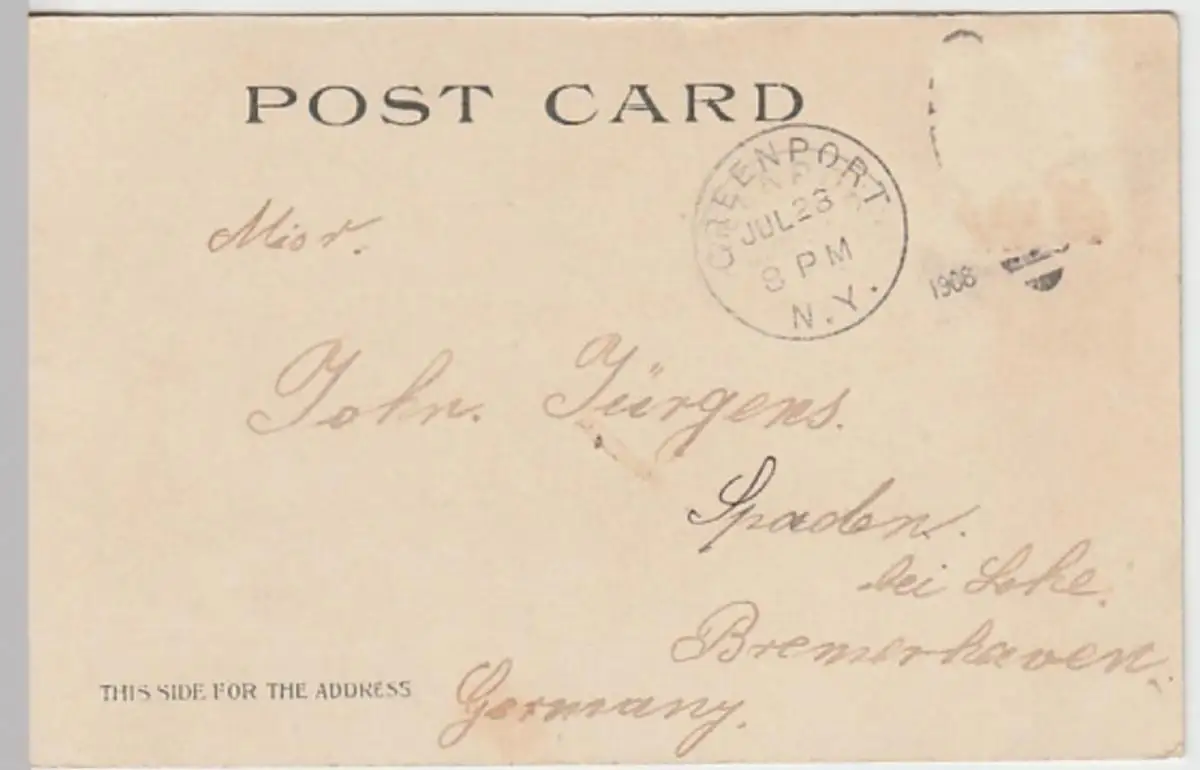 POST CARD
GREENPORT
JUL 23
8 PM
N.Y.
1908
Misr.
John. Jürgens.
Spaden.
bei Lehe.
Bremerhaven.
Germany.
THIS SIDE FOR THE ADDRESS